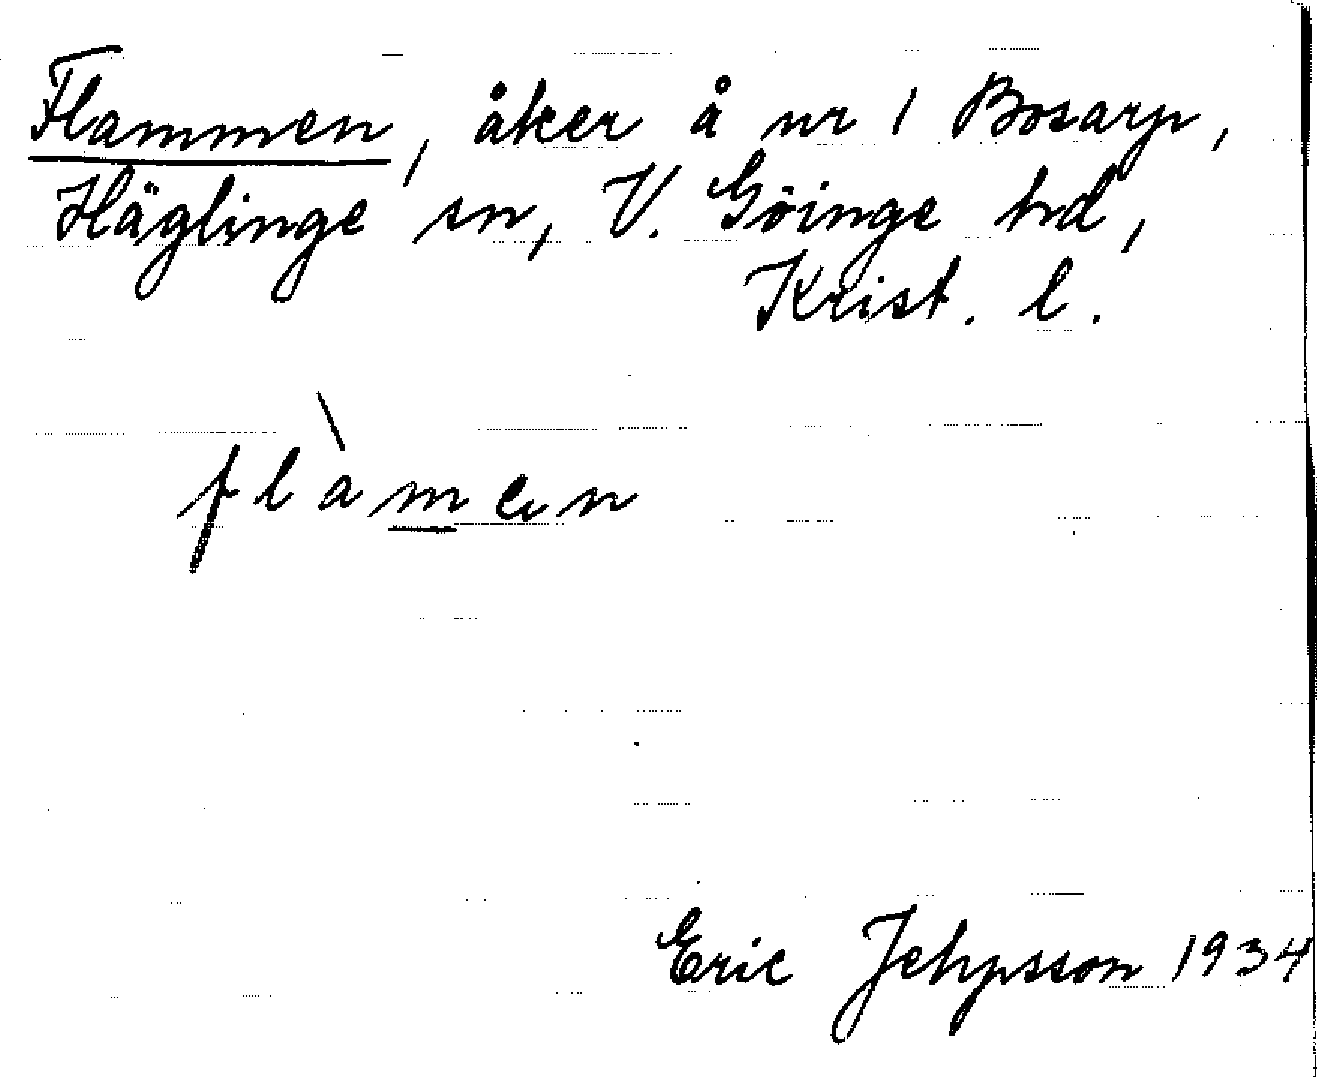 Flammen, åker å nr 1 Bosarp,
Häglinge sn, V. Göinge hd,
Krist. l.
flàmen
Eric Jehpsson 1934